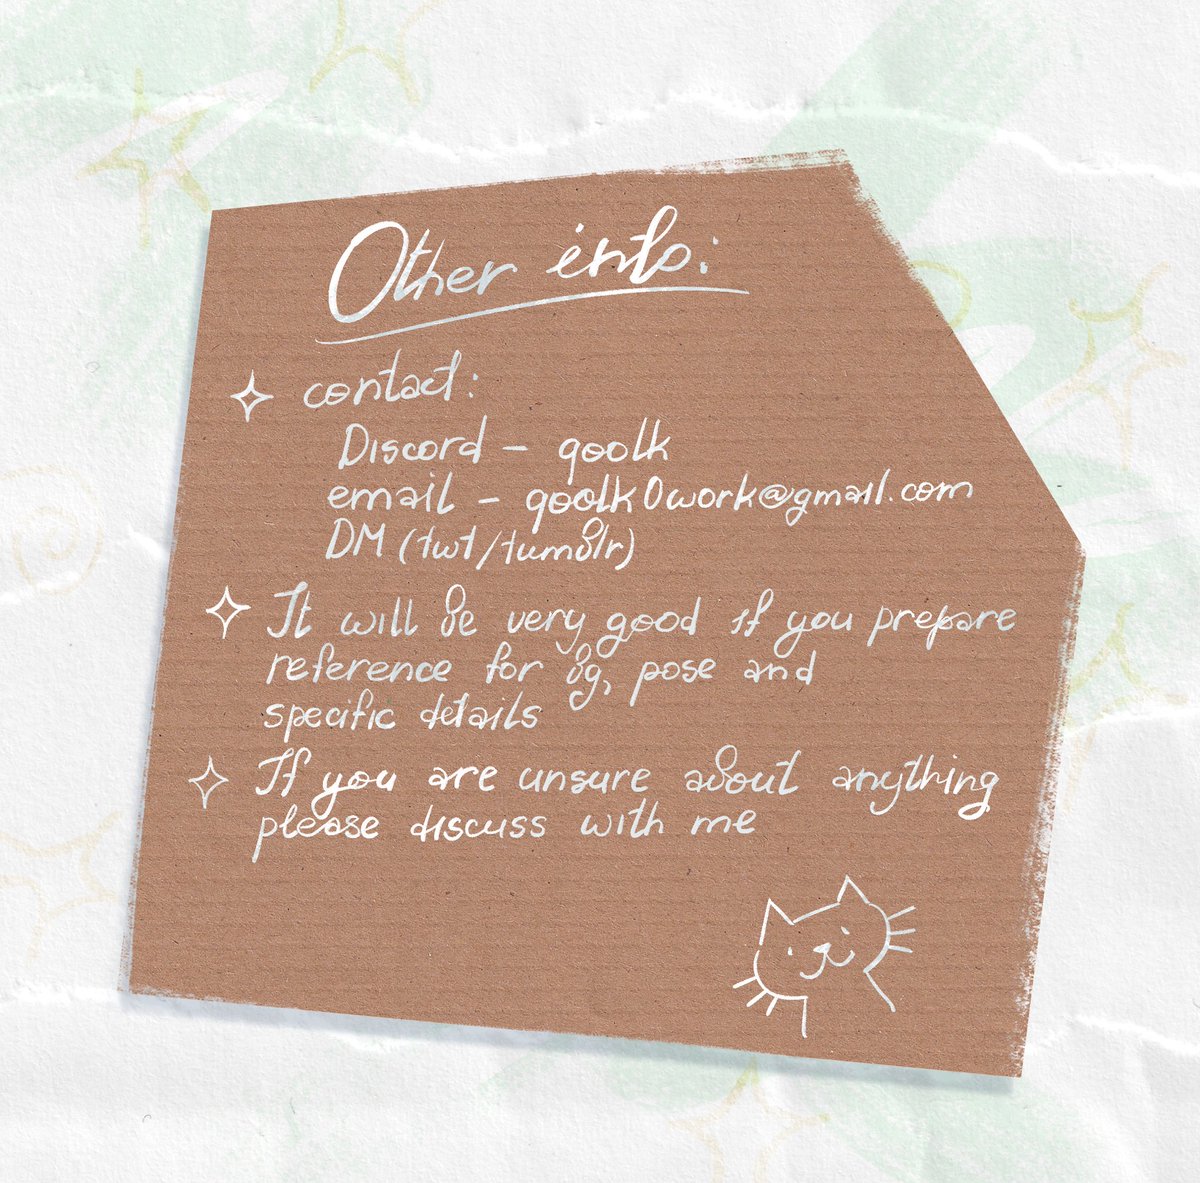 Other info:
contact:
Discord - qoolk
email - qoolk0work@gmail.com
DM (twt/tumblr)
It will be very good if you prepare
reference for bg, pose and
specific details
If you are unsure about anything
please discuss with me